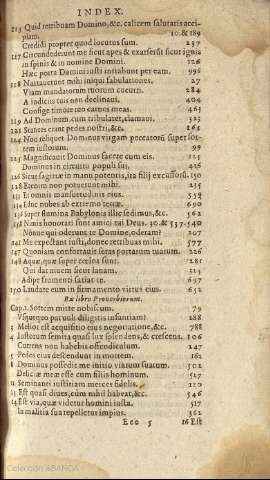 INDEX.
115 Quid retribuam Domino, &c. calicem salutaris acci-
piam. 10. & 189
Credidi propter quod locutus sum. 237
117 Circundederunt me sicut apes & exarserūt sicut ignis
in spinis & in nomine Domini. 126
Hæc porta Domini iusti intrabunt per eam. 996
118 Narrauerunt mihi iniqui fabulationes. 27
Viam mandatorum tuorum cucurri. 284
A iudicijs tuis non declinaui. 404
Confige timore tuo carnes meas. 463
Ad Dominum, cum tribularer, clamaui. 323
Stantes erant pedes nostri, &c. 164
124 Non relinquet Dominus virgam peccatorū super sor-
tem iustorum. 99
125 Magnificauit Dominus facere cum eis. 125
Dominus in circuitu populi sui. 426
126 Sicut sagittæ in manu potentis, ita filij excussorū. 150
128 Etenim non potuerunt mihi. 235
131 Et omnis mansuetudinis eius. 559
134 Educ nubes ab extremo terræ. 690
136 Super flumina Babylonis illic sedimus, &c. 362
138 Nimis honorati sunt amici tui Deus. 30. & 537. 540
Nonne qui oderunt te Domine, oderam? 207
141 Me expectant iusti, donec retribuas mihi. 577
147 Quoniam confortauit seras portarum tuarum. 226
148 Aquæ, quæ super cœlos sunt. 281
Qui dat niuem sicut lanam. 323
Adipe frumenti satiat te. 697
150 Laudate eum in firmamento virtutis eius. 652
Ex libro Prouerbiorum.
Cap. 1. Sortem mitte nobiscum. 79
Vsquequo paruuli diligitis infantiam? 288
3 Melior est acquisitio eius negotiatione, &c. 788
4 Iustorum semita quasi lux splendens, & crescens. 106
Currens non habebis offendiculum. 247
5 Pedes eius descendunt in mortem. 162
8 Dominus possedit me initio viarum suarum. 502
Deliciæ meæ esse cum filijs hominum. 517
11 Seminanti iustitiam merces fidelis. 120
13 Est quasi diues, cum nihil habeat, &c. 546
14 Est via, quæ videtur homini iusta. 517
In malitia sua repelletur impius. 362
Ecc 5 16 Est
Colección ABANCA